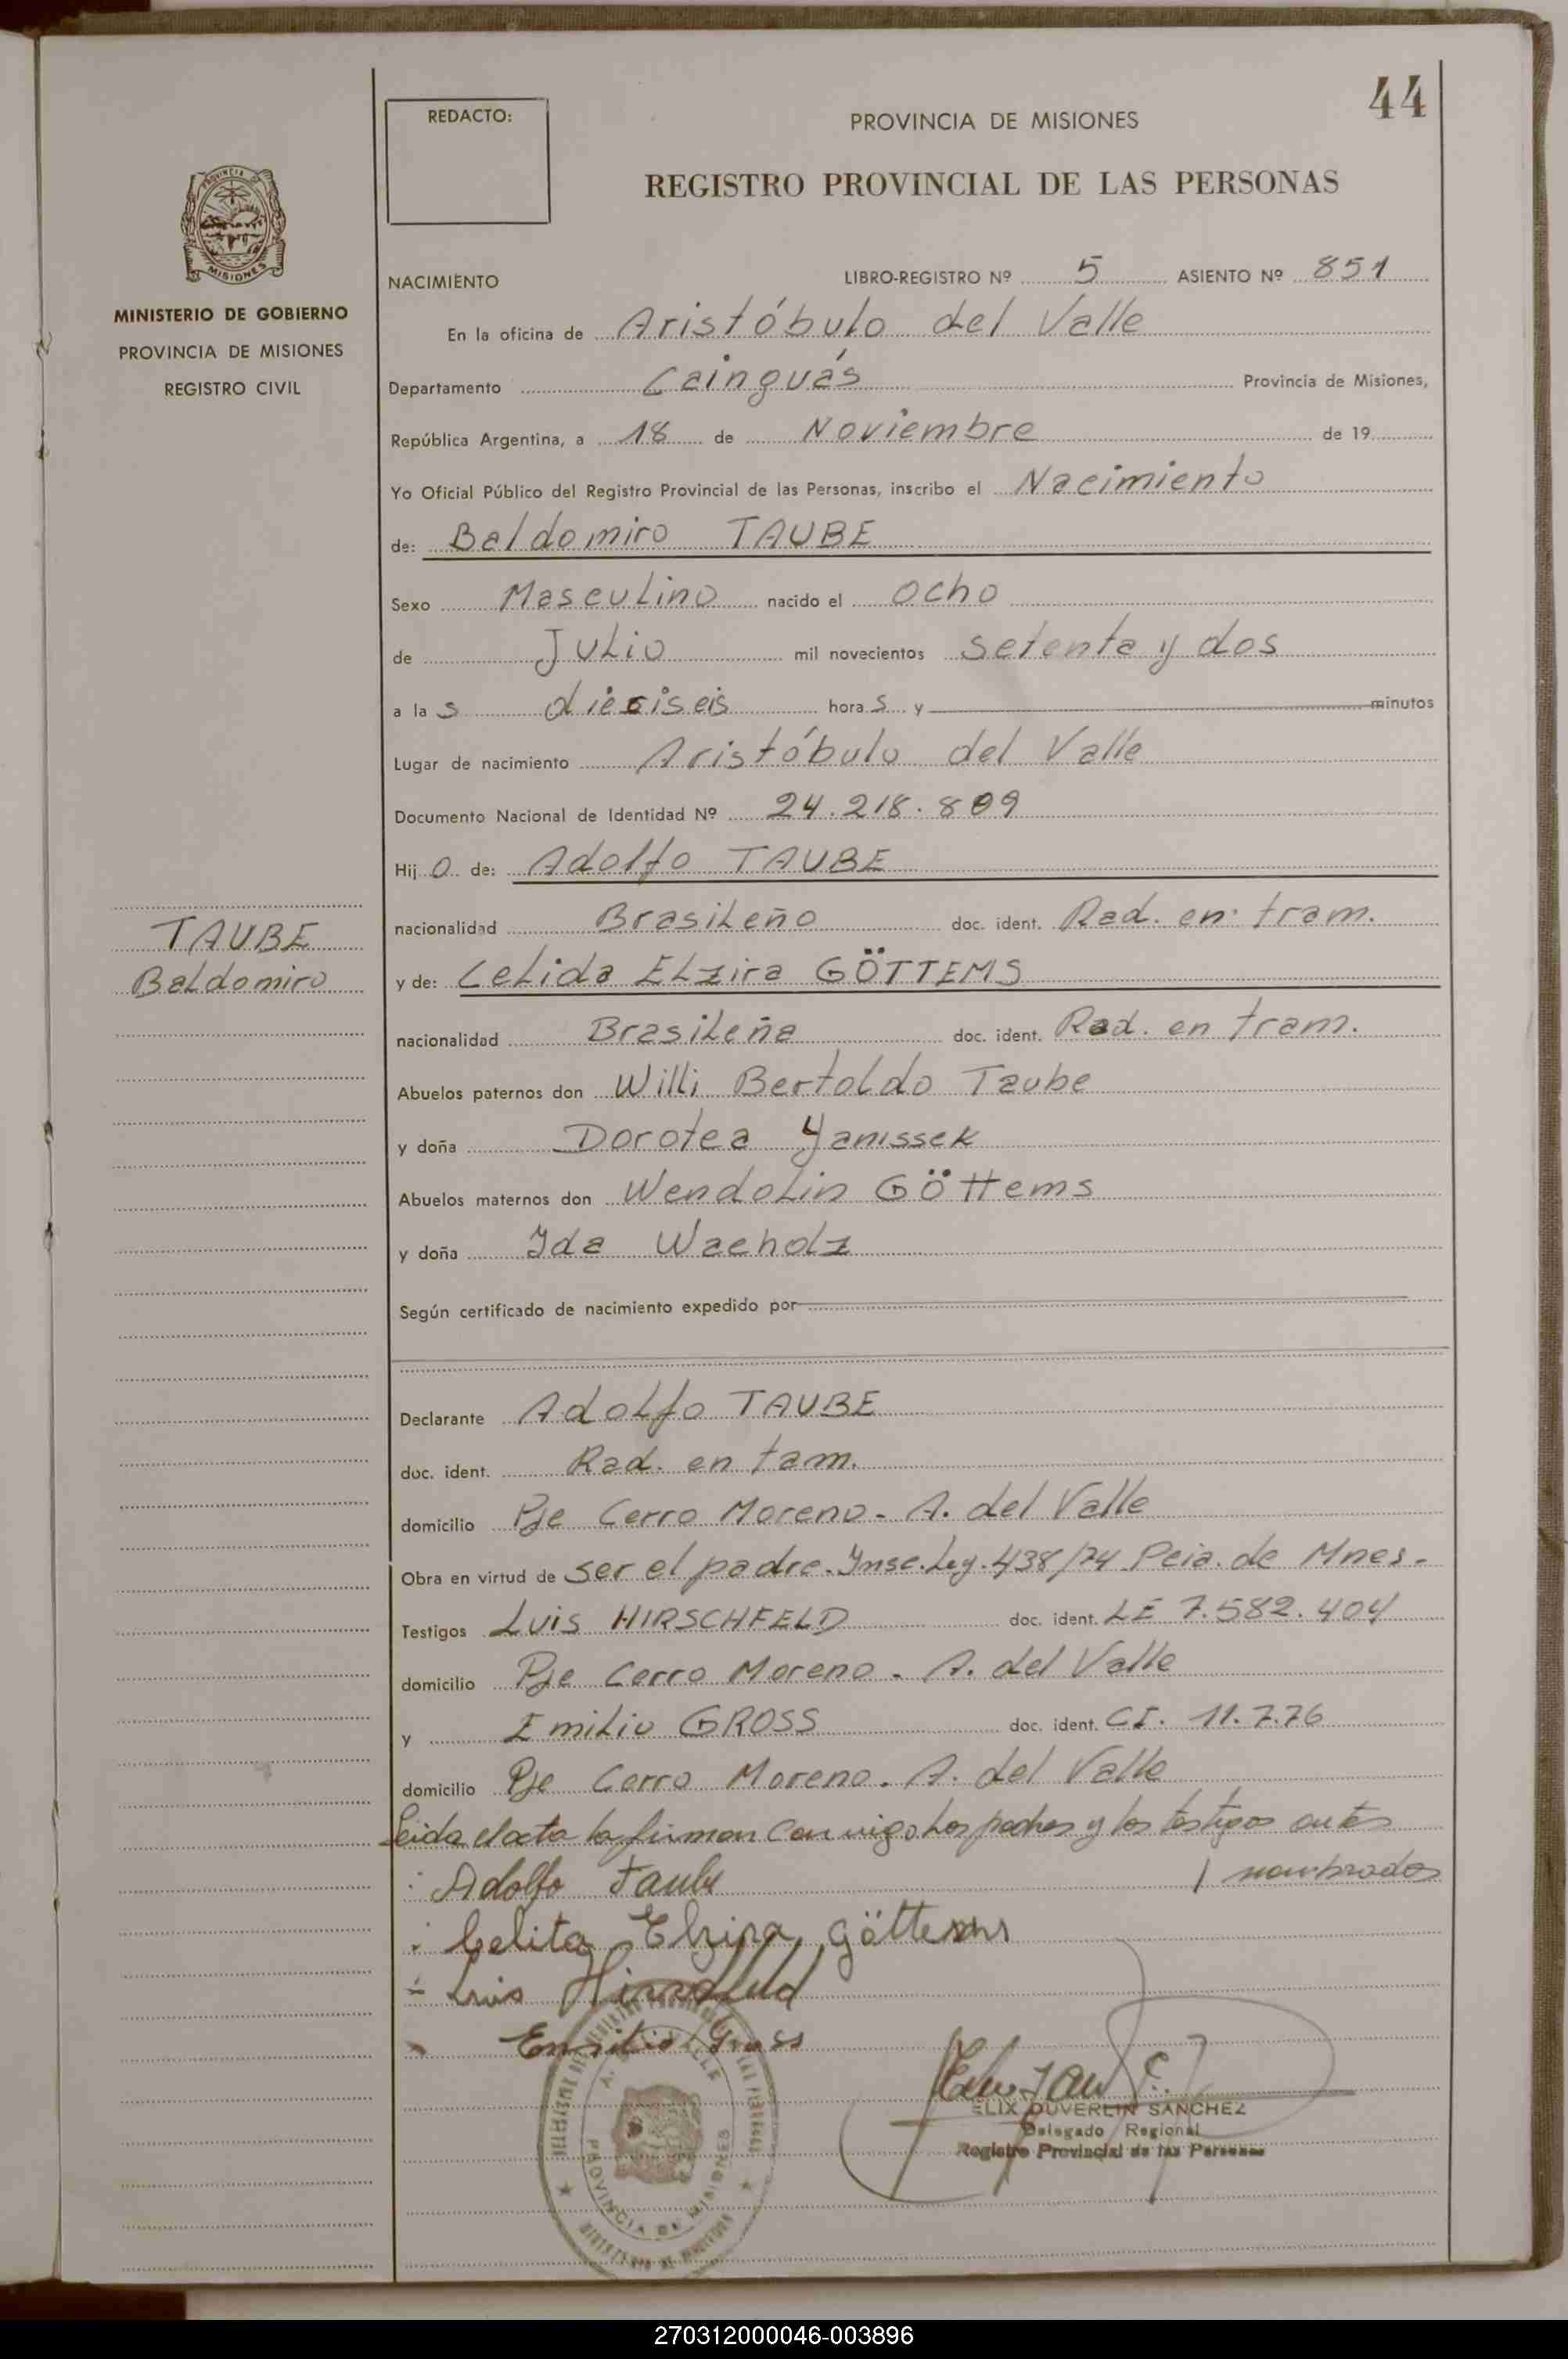 44
REDACTO:
PROVINCIA DE MISIONES
REGISTRO PROVINCIAL DE LAS PERSONAS
PROVINCIA DE
MISIONES
MINISTERIO DE GOBIERNO
PROVINCIA DE MISIONES
REGISTRO CIVIL
NACIMIENTO LIBRO-REGISTRO Nº 5 ASIENTO Nº 851
En la oficina de Aristóbulo del Valle
Departamento Cainguás Provincia de Misiones,
República Argentina, a 18 de Noviembre de 19
Yo Oficial Público del Registro Provincial de las Personas, inscribo el Nacimiento
de: Baldomiro TAUBE
Sexo Masculino nacido el ocho
de Julio mil novecientos setenta y dos
a la s dieciseis hora s y minutos
Lugar de nacimiento Aristóbulo del Valle
Documento Nacional de Identidad Nº 24.218.809
Hij o de: Adolfo TAUBE
nacionalidad Brasileño doc. ident. Rad. en tram.
TAUBE
Baldomiro
y de: Celida Elzira GÖTTEMS
nacionalidad Brasileña doc. ident. Rad. en tram.
Abuelos paternos don Willi Bertoldo Taube
y doña Dorotea Yanissek
Abuelos maternos don Wendolin Göttems
y doña Yda Wacholz
Según certificado de nacimiento expedido por
Declarante Adolfo TAUBE
doc. ident. Rad. en tam.
domicilio Pje Cerro Moreno - A. del Valle
Obra en virtud de ser el padre. Ynsc. Ley. 438/74 Pcia. de Mnes.
Testigos Luis HIRSCHFELD doc. ident. LE 7.582.404
domicilio Pje Cerro Moreno - A. del Valle
y Emilio GROSS doc. ident. CI. 11.7.76
domicilio Pje Cerro Moreno. A. del Valle
Leida el acta la firman conmigo los padres y los testigos antes
/ nombrados
Adolfo Taube
Celita Elzira Göttems
Luis Hirschfeld
Emilio Gross
ELIX DUVERLIN SANCHEZ
Delegado Regional
Registro Provincial de las Personas
PROVINCIA DE MISIONES
270312000046-003896